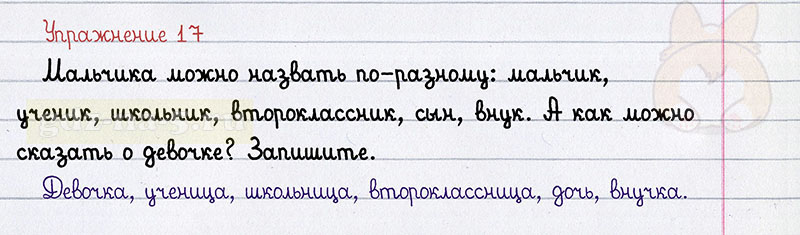 Упражнение 17
Мальчика можно назвать по-разному: мальчик,
ученик, школьник, второклассник, сын, внук. А как можно
сказать о девочке? Запишите.
Девочка, ученица, школьница, второклассница, дочь, внучка.